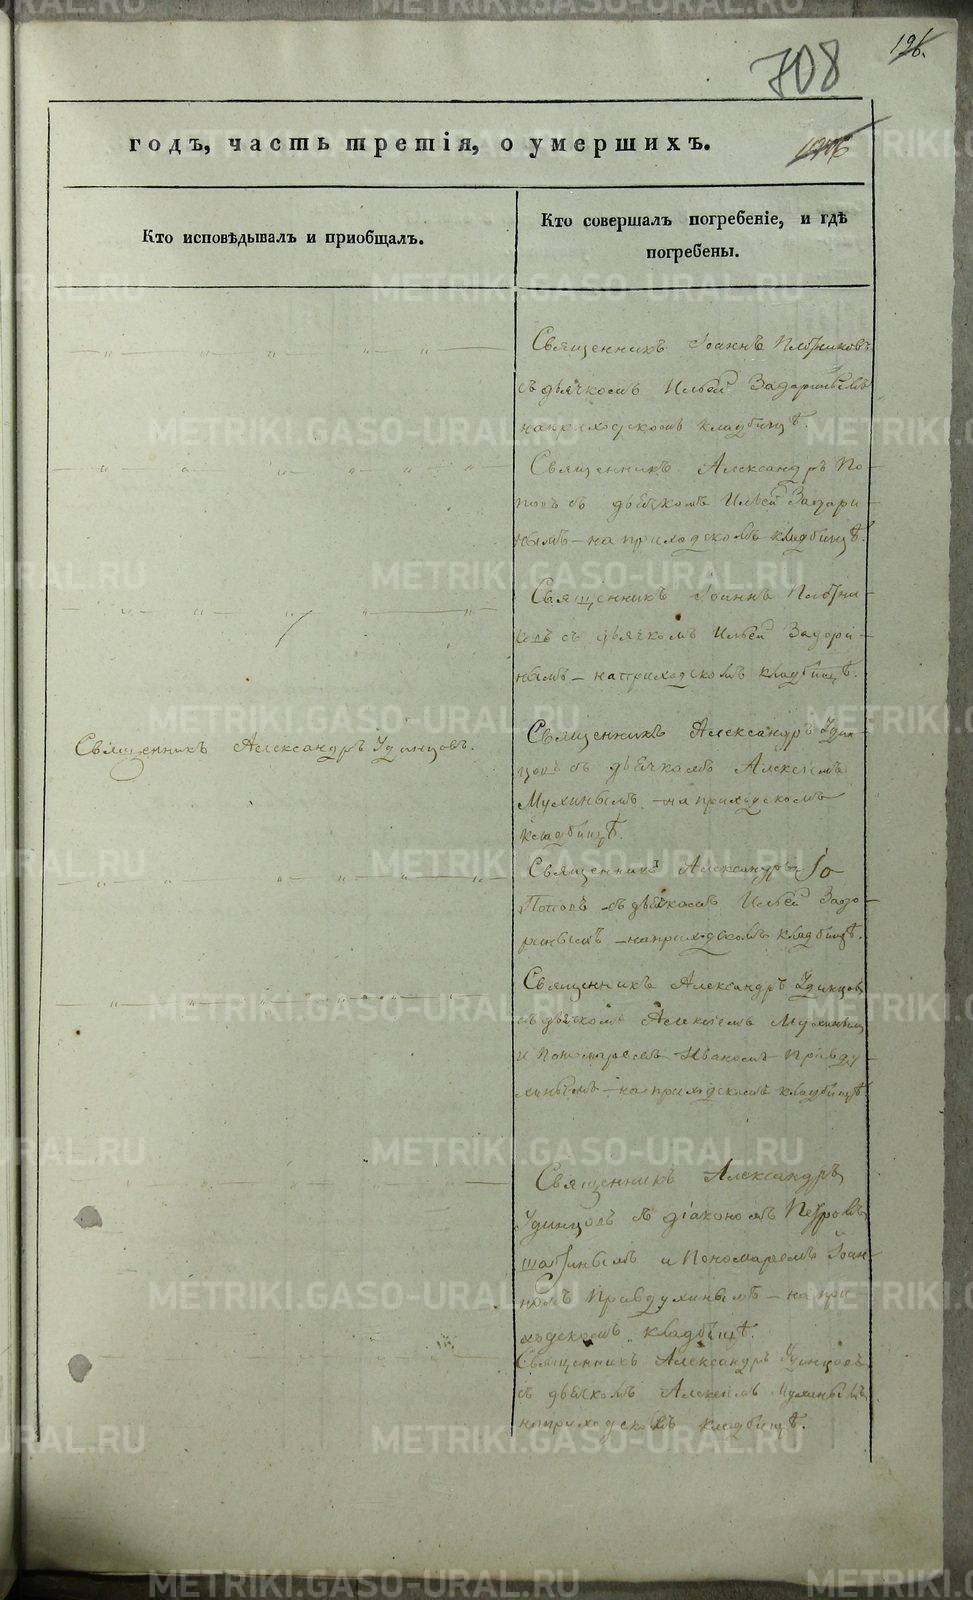 708
126.
годъ, часть третія, о умершихъ.
Кто исповѣдывалъ и пріобщалъ.
Кто совершалъ погребеніе, и гдѣ
погребены.
Священникъ Іоаннъ Плотниковъ
съ дьячкомъ Ильей Задоринымъ
на приходскомъ кладбищѣ.
Священникъ Александръ По-
повъ съ дьячкомъ Ильей Задори-
нымъ – на приходскомъ кладбищѣ.
Священникъ Іоаннъ Плотни-
ковъ съ дьячкомъ Ильей Задори-
нымъ – на приходскомъ кладбищѣ.
Священникъ Александръ Удинцовъ.
Священникъ Александръ Удин-
цовъ съ дьячкомъ Алексѣемъ
Мухинымъ – на приходскомъ
кладбищѣ.
Священникъ Александръ
Поповъ – съ дьячкомъ Ильей Задо-
ринымъ – на приходскомъ кладбищѣ.
Священникъ Александръ Удинцовъ
съ дьячкомъ Алексѣемъ Мухинымъ
и Пономаремъ Иваномъ Правду-
хинымъ – на приходскомъ кладбищѣ
Священникъ Александръ
Удинцовъ съ діакономъ Петромъ
и Пономаремъ Іоан-
номъ Правдухинымъ – на при-
ходскомъ кладбищѣ.
Священникъ Александръ Удинцовъ
съ дьячкомъ Алексѣемъ Мухинымъ
на приходскомъ кладбищѣ.
METRIKI.GASO-URAL.RU